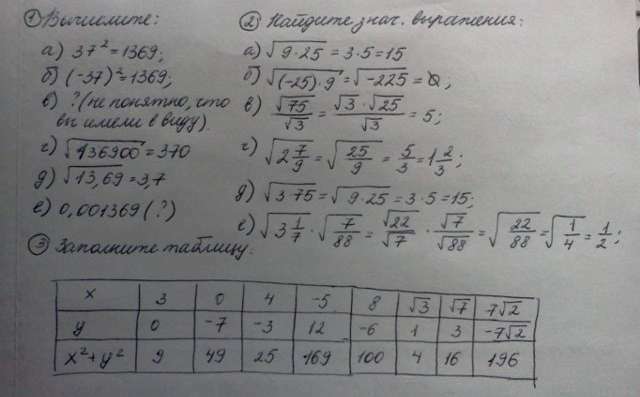 ① Вычислите:
а) 37² = 1369;
б) (-37)² = 1369;
в) ? (не понятно, что
вы имели в виду).
г) √136900 = 370
д) √13,69 = 3,7
е) 0,001369 (?)
② Найдите знач. выражения:
а) √(9·25) = 3·5 = 15
б) √((-25)·9) = √(-225) = Ø;
в) √75/√3 = (√3·√25)/√3 = 5;
г) √(2 7/9) = √(25/9) = 5/3 = 1 2/3;
д) √(3·75) = √(9·25) = 3·5 = 15;
е) √(3 1/7) · √(7/88) = √22/√7 · √7/√88 = √(22/88) = √(1/4) = 1/2;
③ Заполните таблицу:
x 3 0 4 -5 8 √3 √7 7√2
y 0 -7 -3 12 -6 1 3 -7√2
x²+y² 9 49 25 169 100 4 16 196